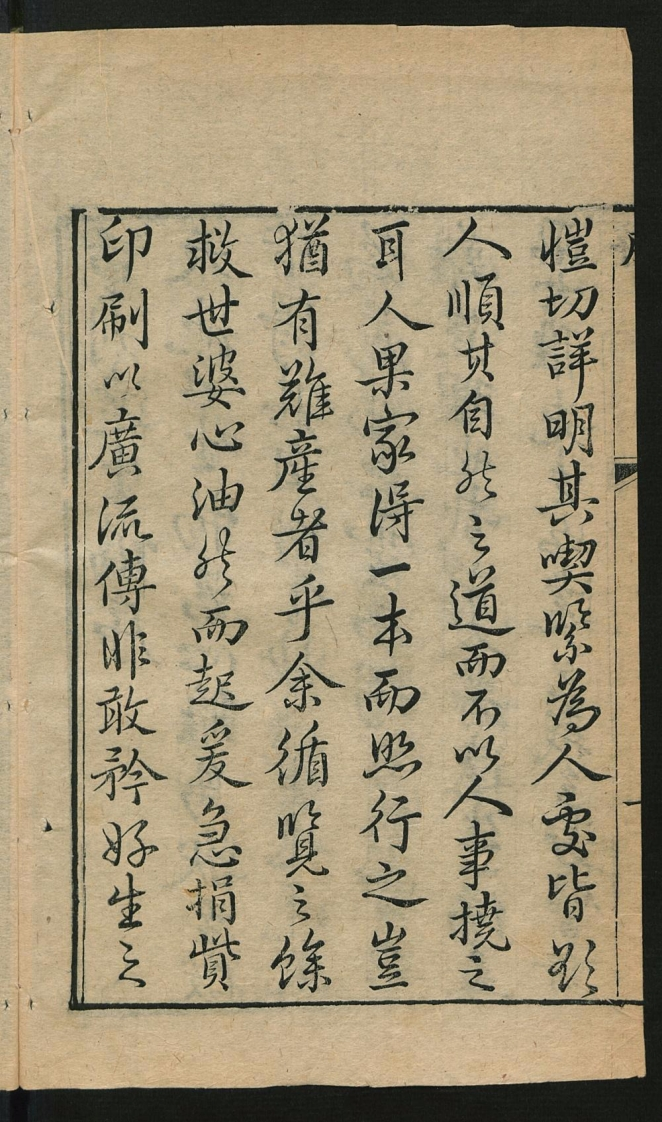 愷切詳明其喫緊為人處皆欲
人順其自然之道而不以人事撓之
耳人果家得一本而照行之豈
猶有難產者乎余循覽之餘
救世婆心油然而起爰急捐貲
印刷以廣流傳昨敢矜好生之